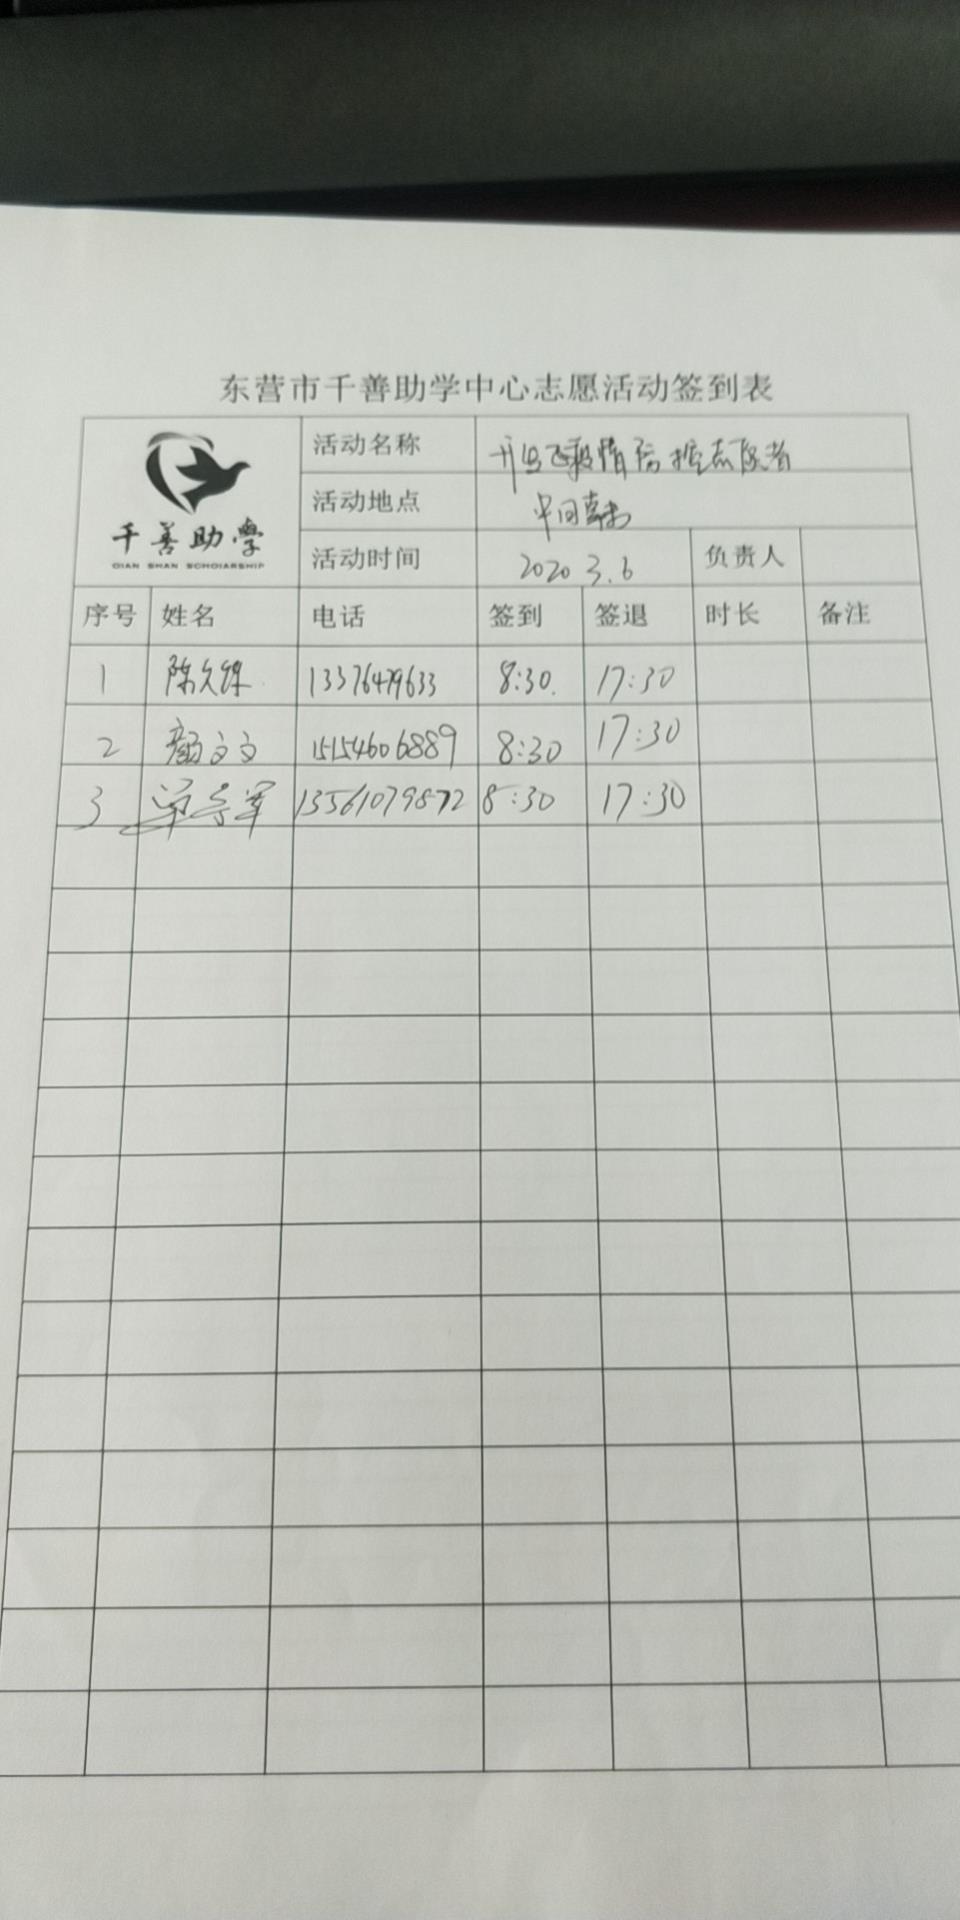 东营市千善助学中心志愿活动签到表
千善助学
QIAN SHAN SCHOIARSHIP
活动名称 疫情防控志愿者
活动地点
活动时间 2020 3.6 负责人
序号 姓名 电话 签到 签退 时长 备注
1 陈久 13376479633 8:30. 17:30
2 颜文文 15154606889 8:30 17:30
3 13561079872 8:30 17:30